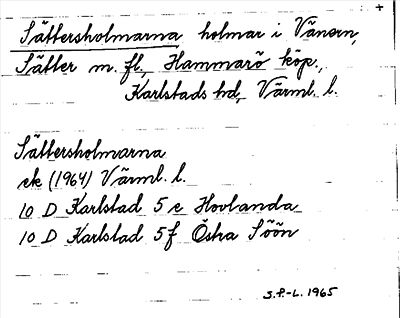 Sättersholmarna holmar i Vänern,
Sätter m. fl., Hammarö köp.,
Karlstads hd, Värml. l.
Sättersholmarna
ek (1964) Värml. l.
10 D Karlstad 5 e Hovlanda
10 D Karlstad 5 f Östra Söön
S.P.-L. 1965